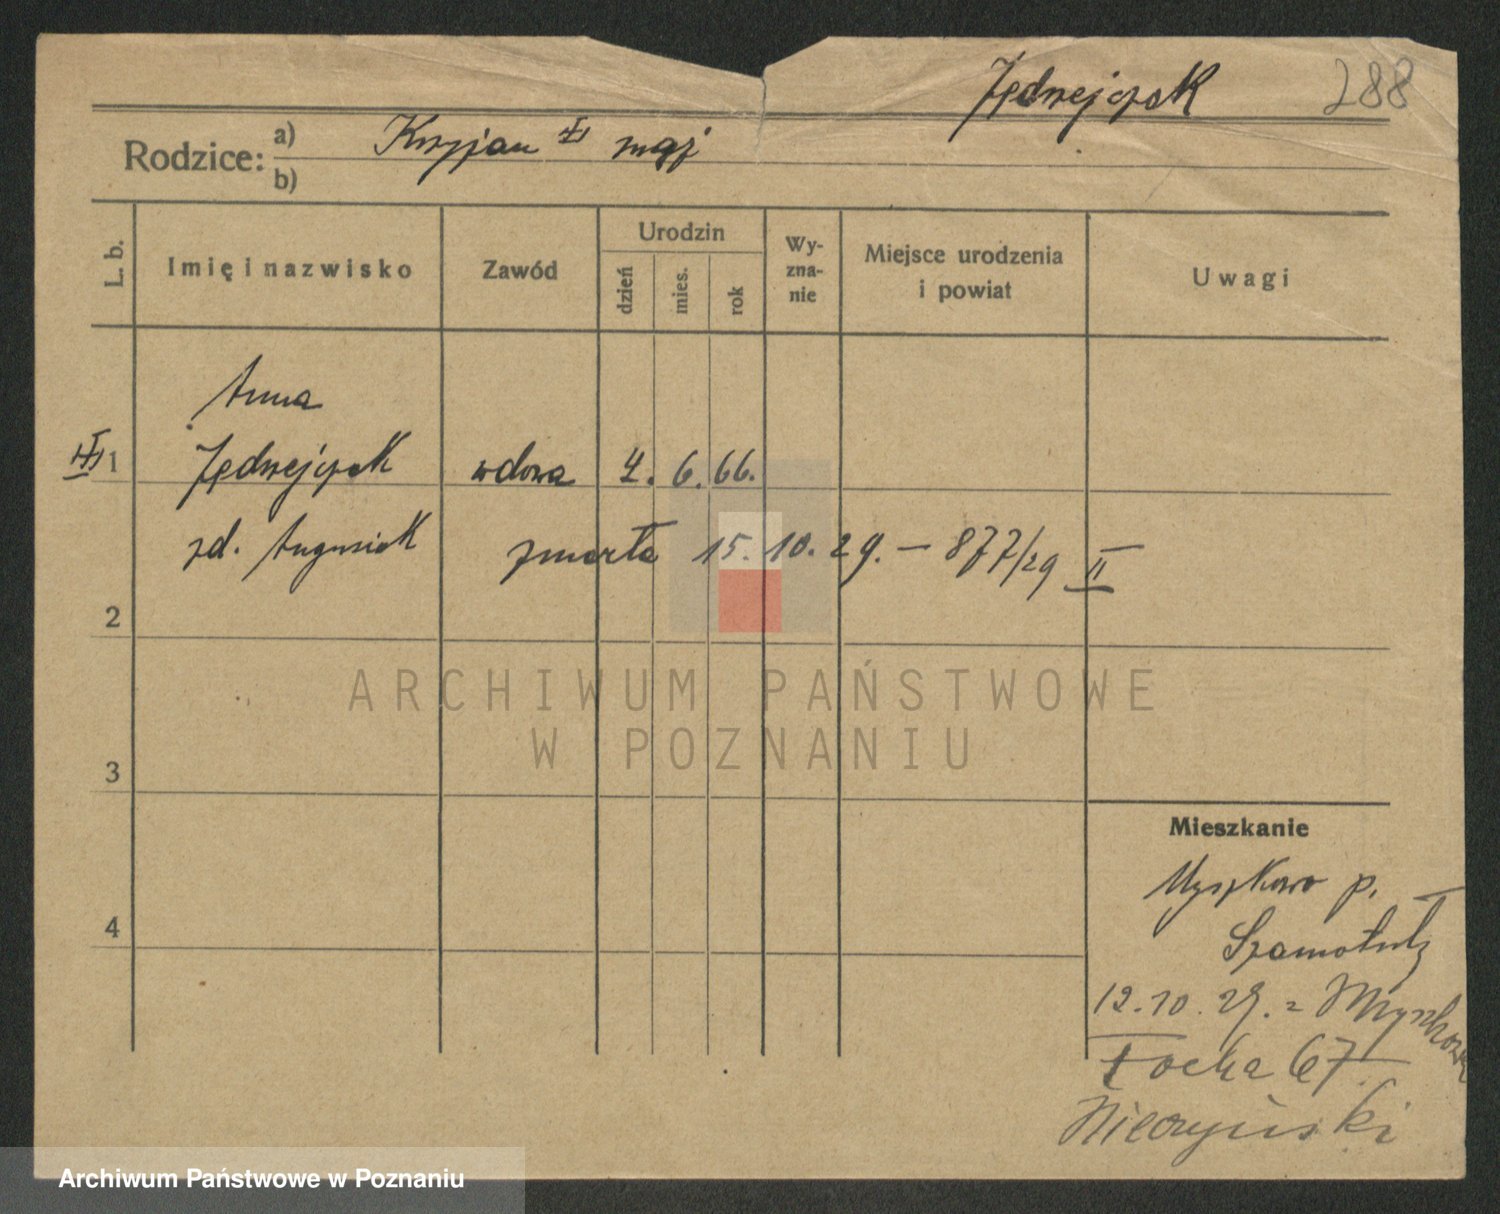 Jędrzejczak 288
Rodzice: a) Krzyżan mąż
b)
L. b. Imię i nazwisko Zawód Urodzin dzień mies. rok Wyznanie Miejsce urodzenia i powiat Uwagi
Anna
1 Jędrzejczak wdowa 4. 6. 66.
zd. Augusiak zmarła 15. 10. 29. – 877/29 II
2
3
4
ARCHIWUM PAŃSTWOWE
W POZNANIU
Mieszkanie
Myszkowo p.
Szamotuły
12. 10. 29. z Myszkowa
Focha 67
Archiwum Państwowe w Poznaniu